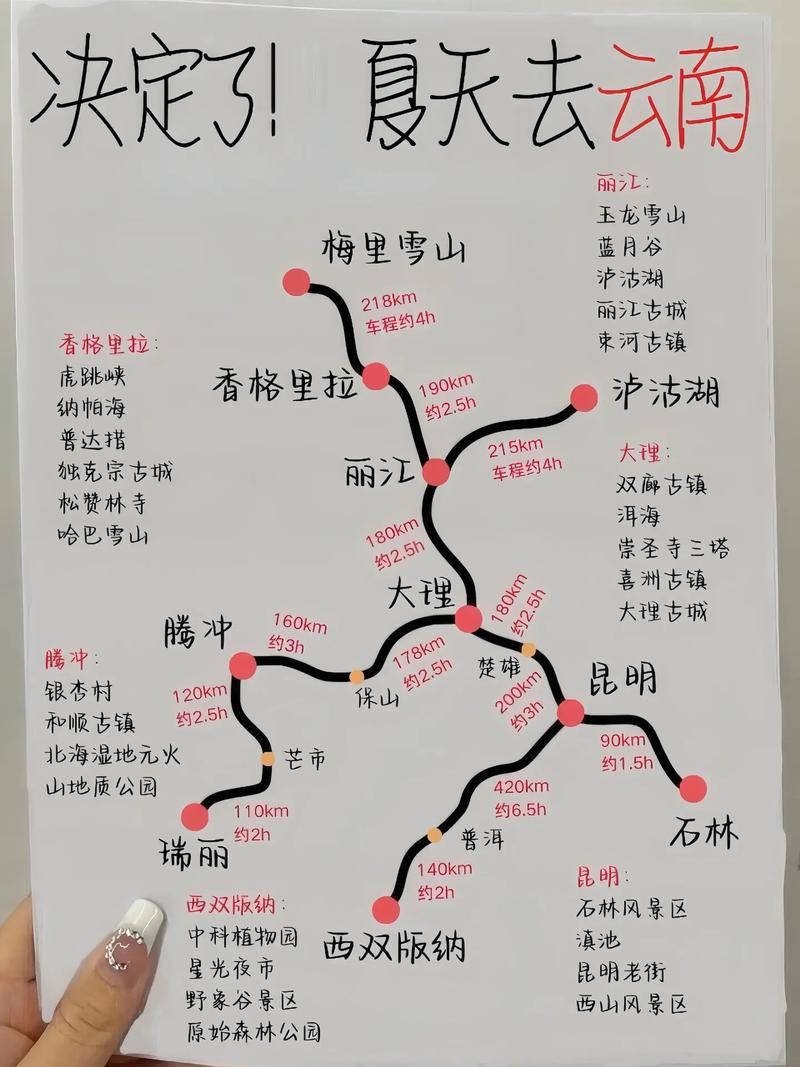 决定了! 夏天去云南
丽江:
玉龙雪山
蓝月谷
泸沽湖
丽江古城
束河古镇
梅里雪山
218km
车程约4h
香格里拉:
虎跳峡
纳帕海
普达措
独克宗古城
松赞林寺
哈巴雪山
香格里拉
190km
约2.5h
泸沽湖
215km
车程约4h
丽江
大理:
双廊古镇
洱海
崇圣寺三塔
喜洲古镇
大理古城
180km
约2.5h
大理
180km
约2.5h
腾冲
160km
约3h
178km
约2.5h
保山
楚雄
200km
约3h
昆明
腾冲:
银杏村
和顺古镇
北海湿地元火
山地质公园
120km
约2.5h
芒市
110km
约2h
瑞丽
90km
约1.5h
石林
420km
约6.5h
普洱
140km
约2h
西双版纳
西双版纳:
中科植物园
星光夜市
野象谷景区
原始森林公园
昆明:
石林风景区
滇池
昆明老街
西山风景区